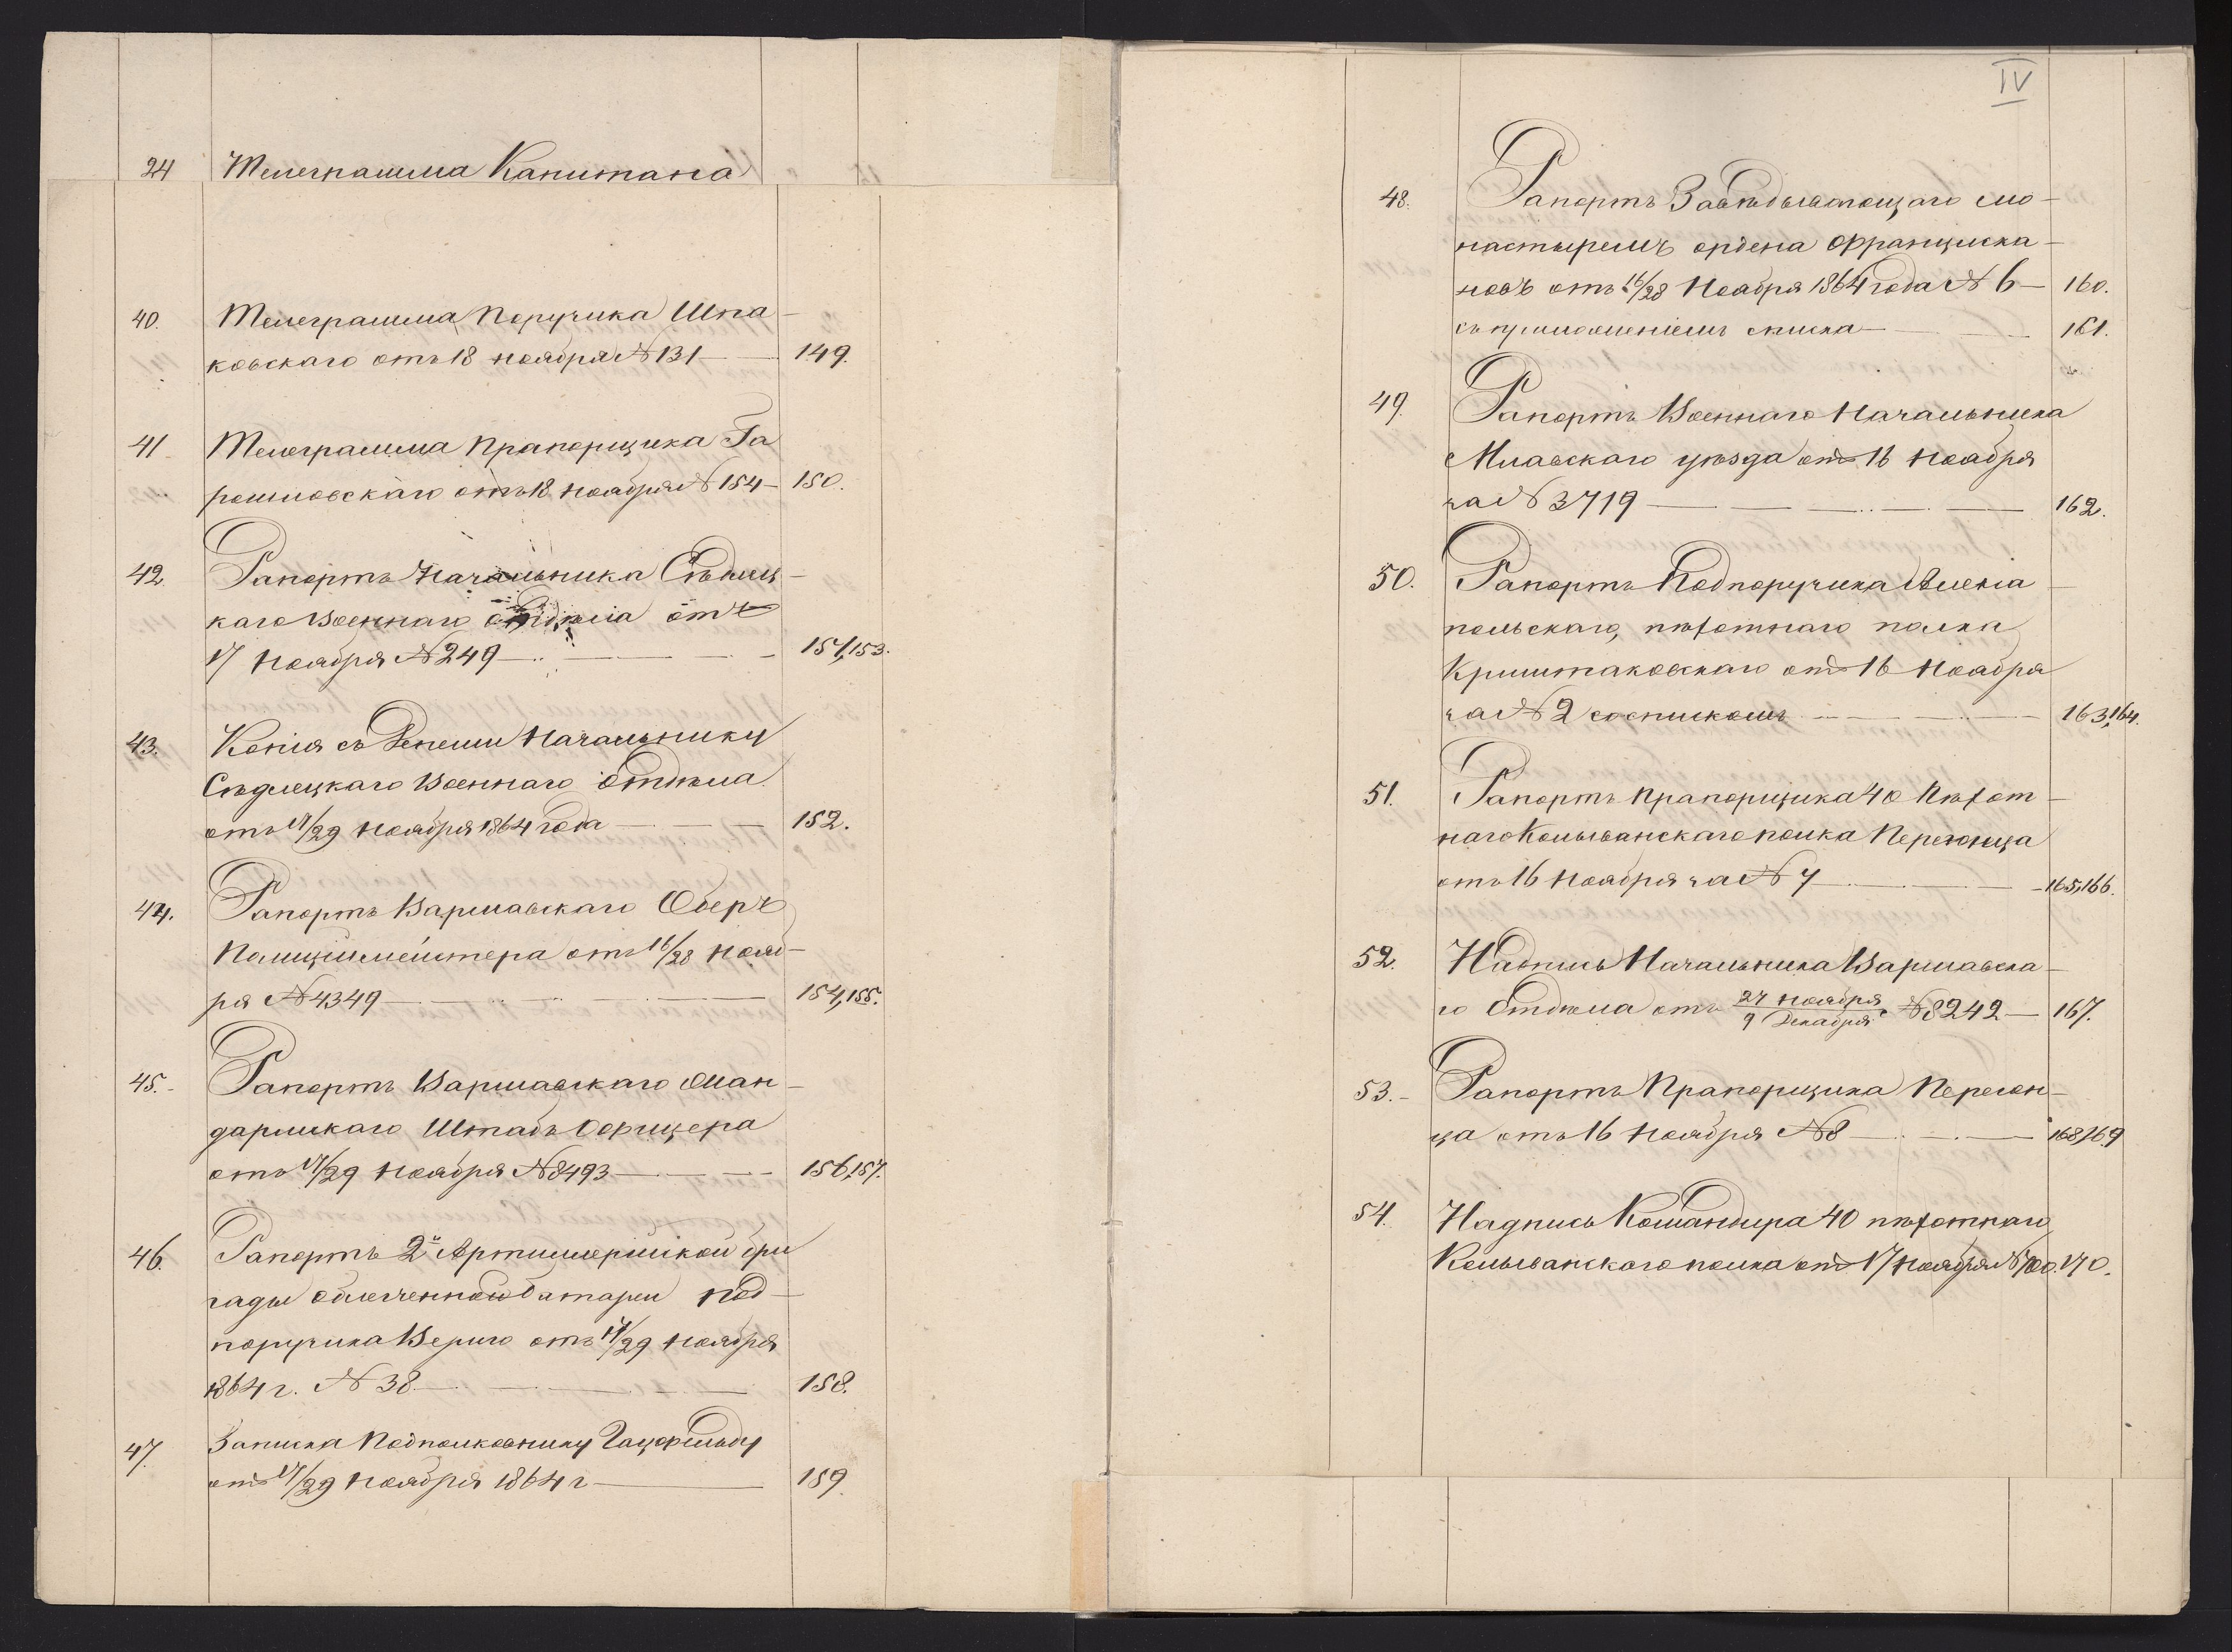 24 Телеграмма Капитана
40. Телеграмма Поручика Шпа-
ковскаго отъ 18 ноября № 131 — 149.
41 Телеграмма Прапорщика Га
рошловскаго отъ 18 ноября № 154 — 150.
42. Рапортъ Начальника Сѣдлец-
каго Военнаго Отдѣла отъ
17 Ноября № 249 — 151,153.
43. Копія съ Депеши Начальнику
Сѣдлецкаго Военнаго Отдѣла
отъ 17/29 Ноября 1864 года — 152.
44. Рапортъ Варшавскаго Оберъ
Полицiймейстера отъ 16/28 Нояб-
ря № 4349 — 154,155.
45. Рапортъ Варшавскаго Жан-
дармскаго Штабъ Офицера
отъ 17/29 Ноября № 8493 — 156,157.
46. Рапортъ 2й Артиллерійской бри
гады облегченной батареи Под-
поручика Вериго отъ 17/29 Ноября
1864 г. № 38 — 158.
47. Записка Подполковнику Гацфельду
отъ 17/29 Ноября 1864 г — 159.
IV
48. Рапортъ Завѣдывающаго мо-
настыремъ ордена Франциска-
новъ отъ 16/28 Ноября 1864 года № 6 — 160.
съ приложеніемъ списка — 161.
49. Рапортъ Военнаго Начальника
Млавскаго уѣзда отъ 16 Ноября
за № 3719 — 162.
50. Рапортъ Подпоручика
польскаго, пѣхотнаго полка
Криштаковскаго отъ 16 Ноября
за № 2 со спискомъ — 163,164.
51. Рапортъ Прапорщика 40 Пѣхот-
наго Колыванскаго полка Перегонца
отъ 16 Ноября за № 7 — 165,166.
52. Надпись Начальника Варшавска-
го Отдѣла отъ 27 ноября/9 Декабря № 8242 — 167.
53. Рапортъ Прапорщика Перегон-
ца отъ 16 Ноября № 8 — 168,169
54. Надпись Командира 40 пѣхотнаго
Колыванскаго полка отъ 17 Ноября № 170.